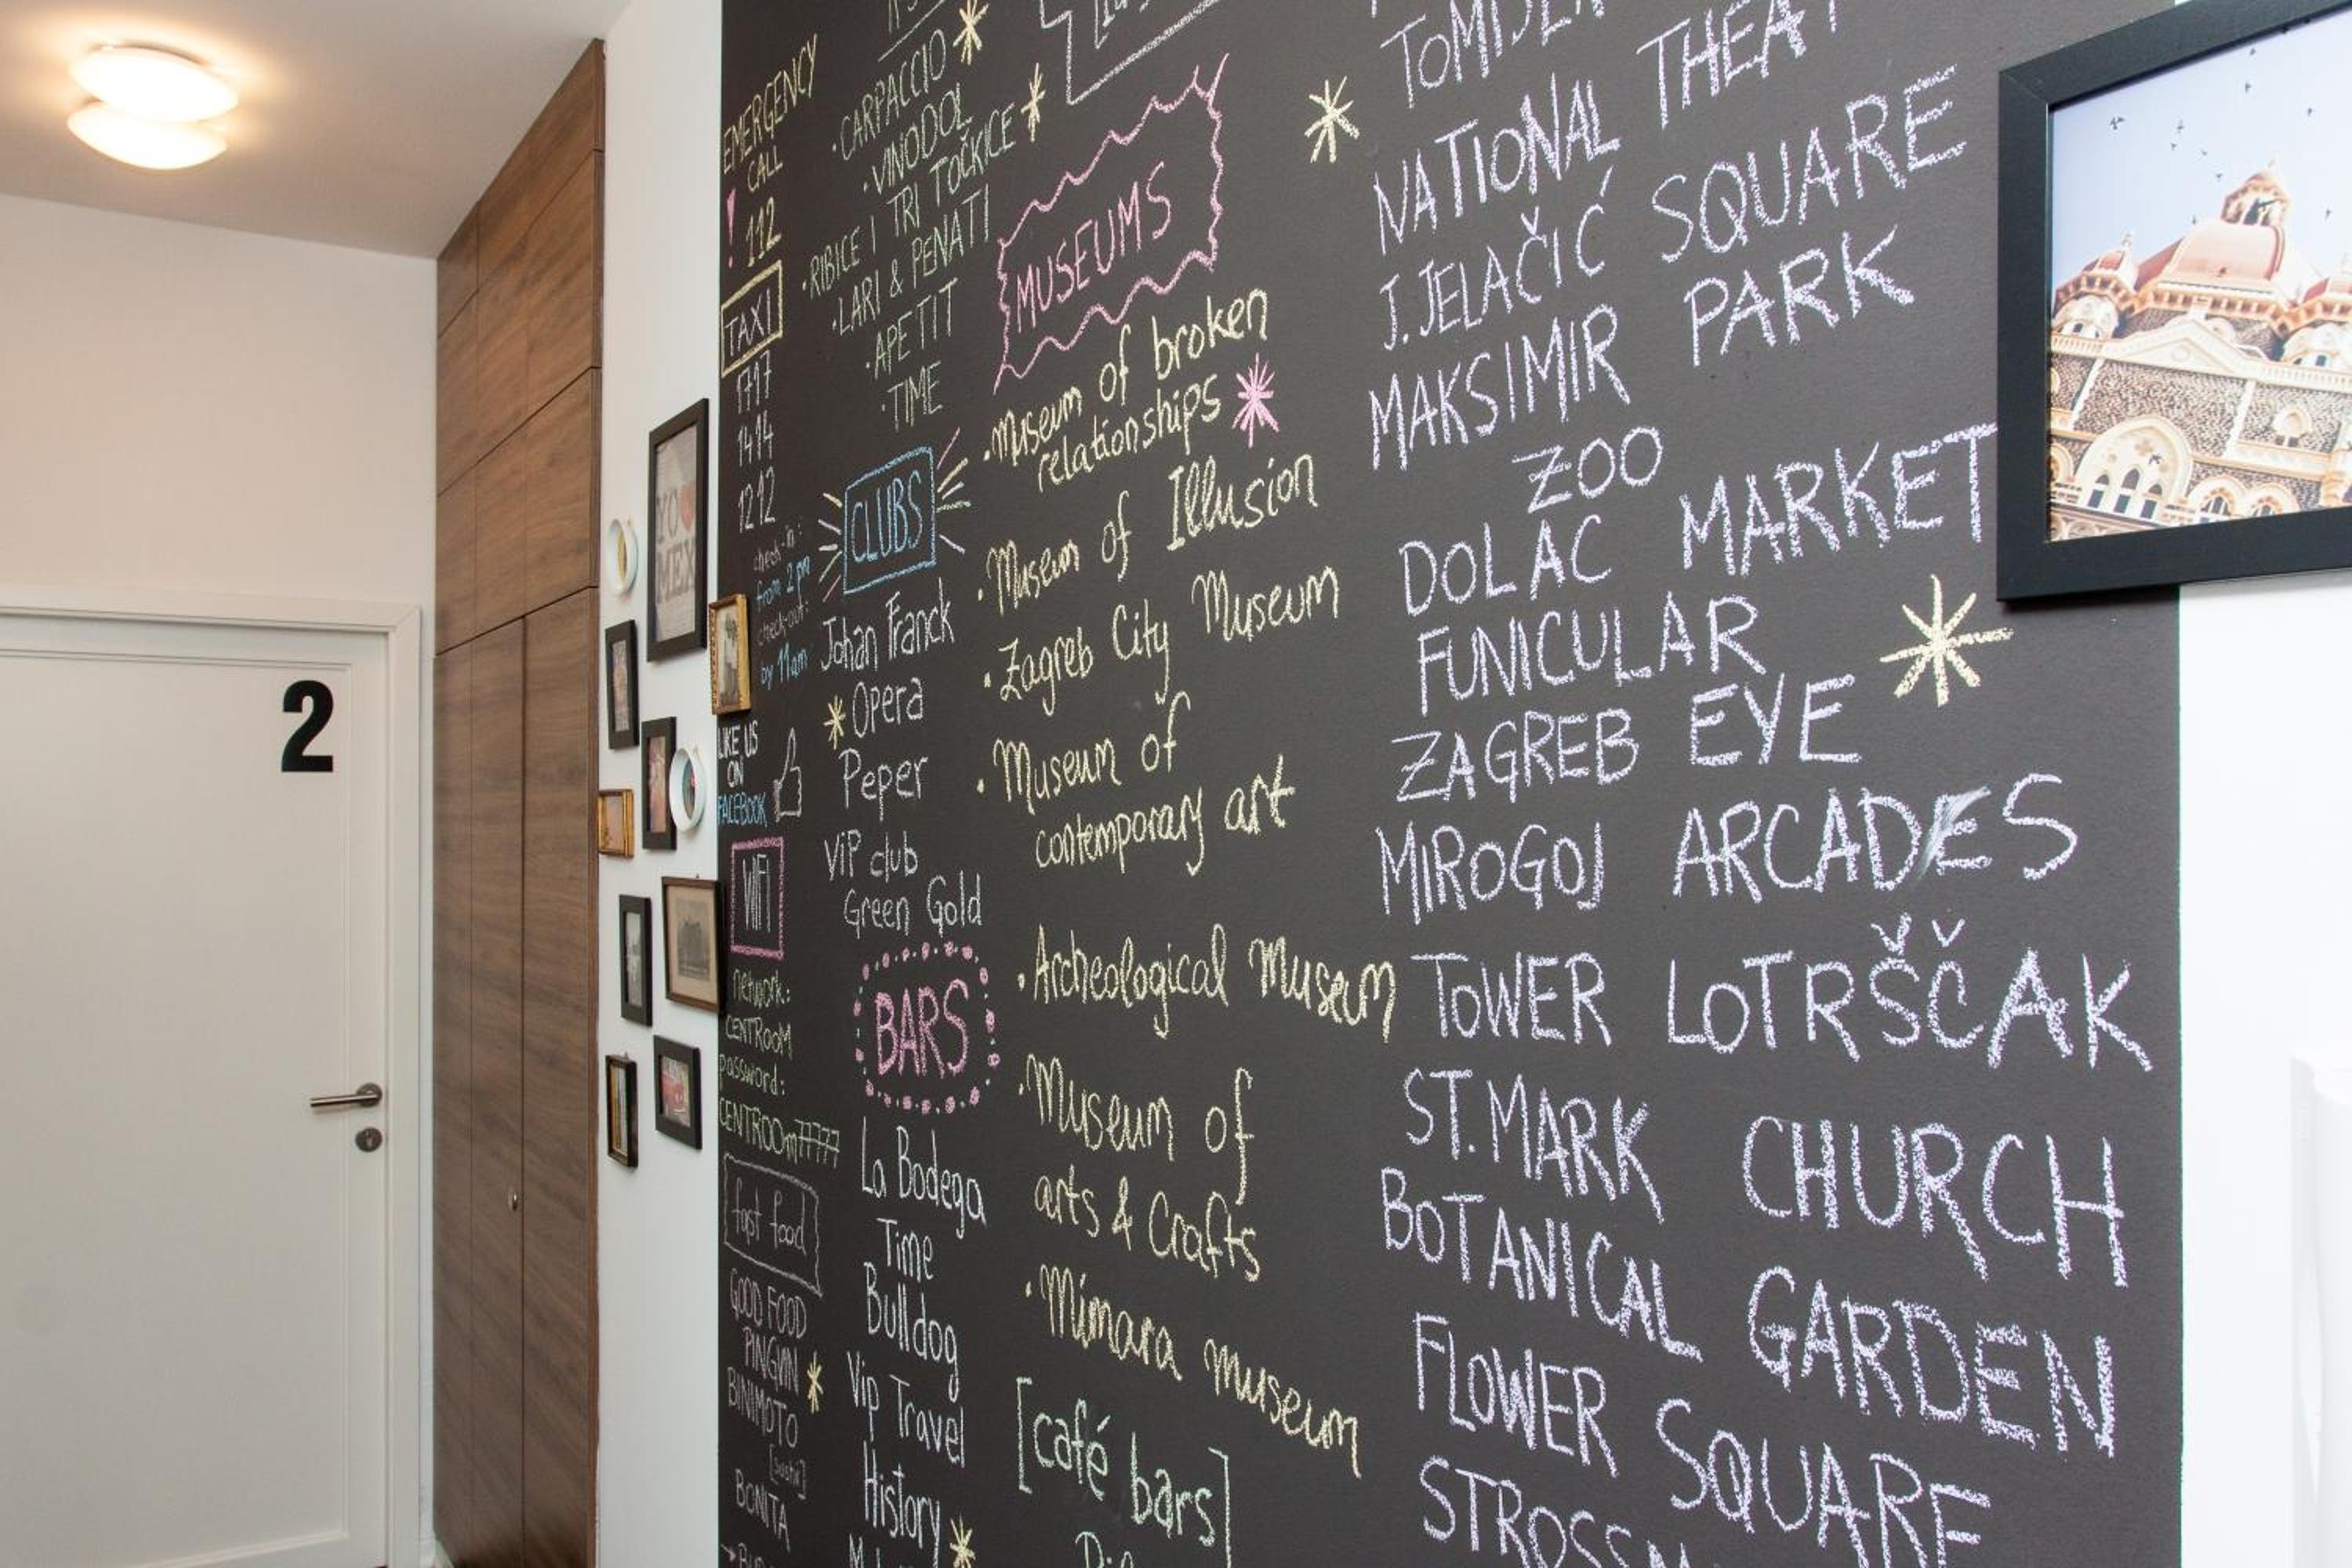 2
YO
MEX
EMERGENCY
CALL
! 112
TAXI
1717
1414
1212
check-in:
from 2 pm
check-out:
by 11am
LIKE US
ON
FACEBOOK
WIFI
network:
CENTROOM
password:
CENTROOm77777
fast food
GOOD FOOD
PINGVIN
BINIMOTO
[sushi]
BONITA
•CARPACCIO
•VINODOL
•RIBICE I TRI TOČKICE
•LARI & PENATI
•APETIT
•TIME
CLUBS
Johan Franck
Opera
Peper
ViP club
Green Gold
BARS
La Bodega
Time
Bulldog
Vip Travel
History
MUSEUMS
•Museum of broken
relationships
•Museum of Illusion
•Zagreb City Museum
•Museum of
contemporary art
•Archeological Museum
•Museum of
arts & Crafts
•Mimara museum
[café bars]
NATIONAL THEAT
J. JELAČIĆ SQUARE
MAKSIMIR PARK
ZOO
DOLAC MARKET
FUNICULAR
ZAGREB EYE
MIROGOJ ARCADES
TOWER LOTRŠČAK
ST. MARK CHURCH
BOTANICAL GARDEN
FLOWER SQUARE
STROSSM